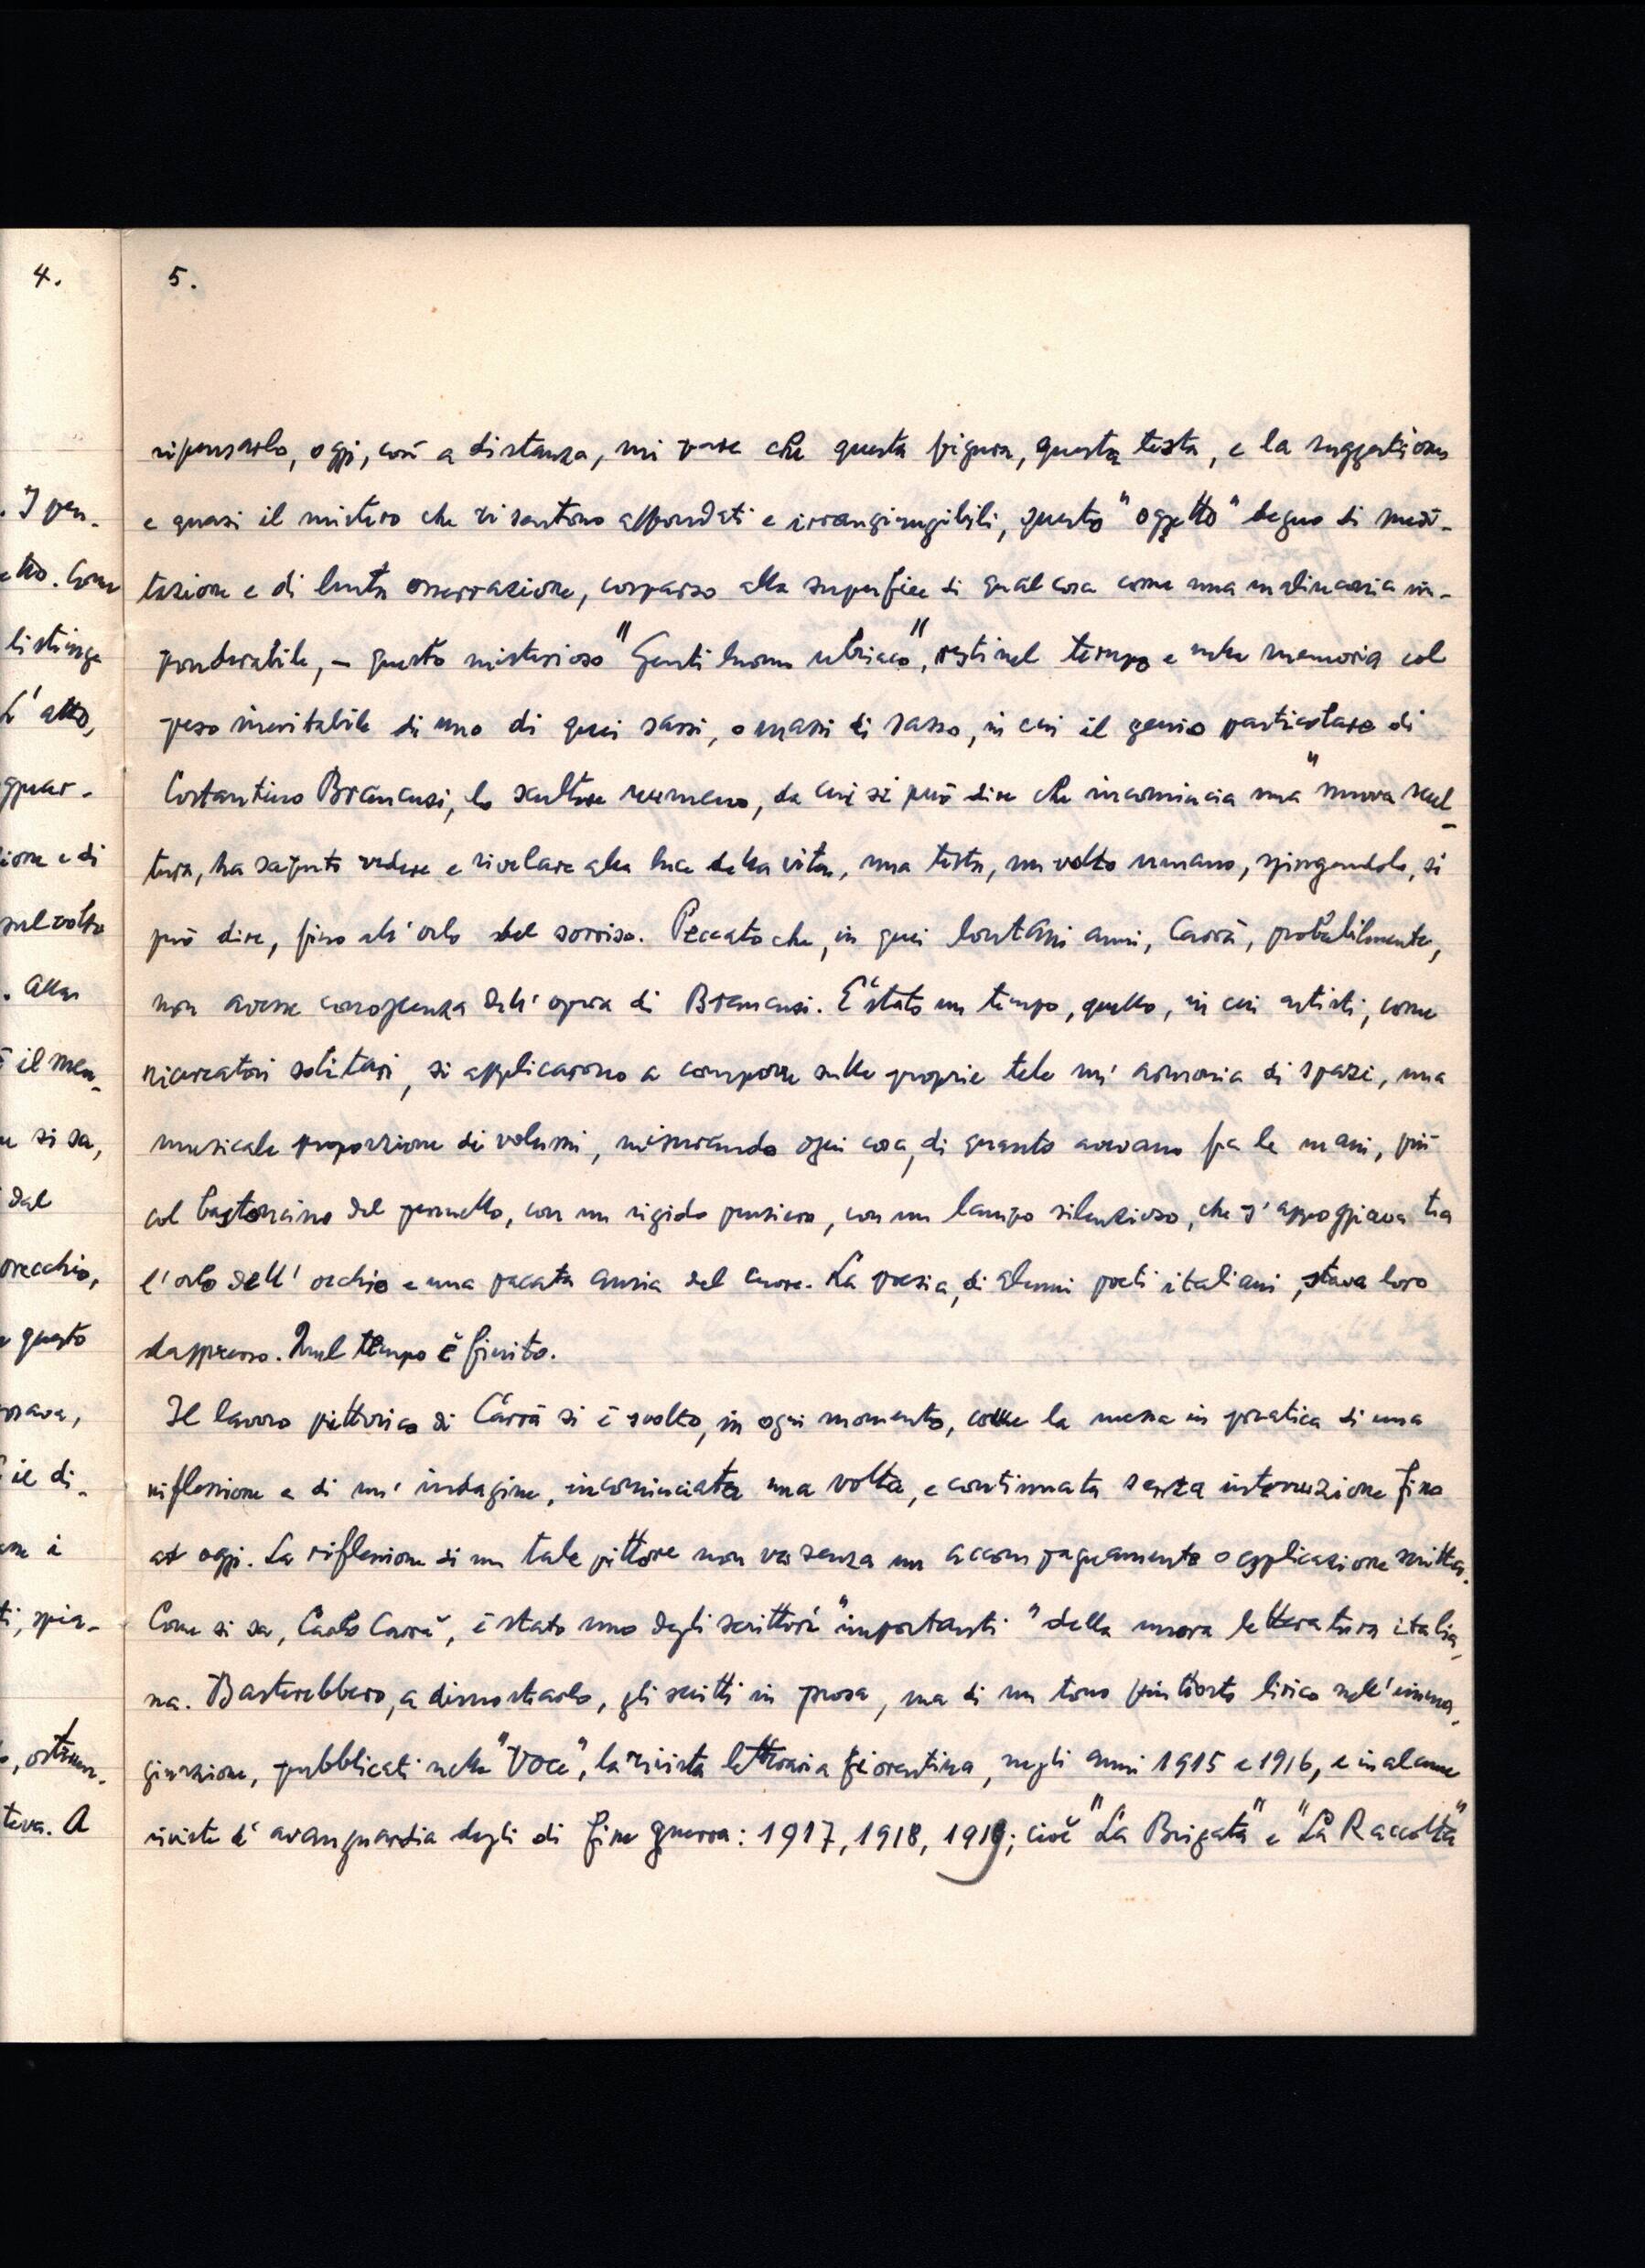 4.
. I pen-
etto. Come
listinga
L' atto,
gguar-
ione e di
sul volto
. Alla
è il men-
e si sa,
dal
orecchio,
e questo
osava,
il di-
am i
ti, spia-
o, ostrun-
teva. A
5.
ripensarlo, oggi, così a distanza, mi pare che questa figura, questa testa, e la suggestione
e quasi il mistero che vi sentono affondati e irrangiungibili, questo "oggetto" degno di medi-
tazione e di lenta osservazione, comparso alla superficie di qual cosa come una malinconia im-
ponderabile, – questo misterioso "Gentiluomo ubriaco", resti nel tempo e nella memoria col
peso inevitabile di uno di quei sassi, o massi di sasso, in cui il genio particolare di
Costantino Brancusi, lo scultore rumeno, da cui si può dire che incomincia una "nuova scul-
tura, ha saputo vedere e rivelare alla luce della vita, una testa, un volto umano, spingendolo, si
può dire, fino all'orlo del sorriso. Peccato che, in quei lontani anni, Carrà, probabilmente,
non avesse conoscenza dell'opera di Brancusi. È stato un tempo, quello, in cui artisti, come
ricercatori solitari, si applicarono a comporre sulle proprie tele un' armonia di spazi, una
musicale proporzione di volumi, misurando ogni cosa, di quanto avevano fra le mani, più
col bastoncino del pennello, con un rigido pensiero, con un lampo silenzioso, che s'appoggiava tra
l'orlo dell' occhio e una pacata ansia del cuore. La poesia, di alcuni poeti italiani, stava loro
dappresso. Quel tempo è finito.
Il lavoro pittorico di Carrà si è svolto, in ogni momento, come la messa in pratica di una
riflessione e di un' indagine, incominciata una volta, e continuata senza interruzione fino
ad oggi. La riflessione di un tale pittore non va senza un accompagnamento o applicazione scritta.
Come si sa, Carlo Carrà, è stato uno degli scrittori "importanti" della nuova letteratura italia-
na. Basterebbero, a dimostrarlo, gli scritti in prosa, ma di un tono piuttosto lirico nell'imma-
ginazione, pubblicati nella "Voce", la rivista letteraria fiorentina, negli anni 1915 e 1916, e in alcune
riviste d' avanguardia degli di fine guerra: 1917, 1918, 1919; cioè "La Brigata" e "La Raccolta"